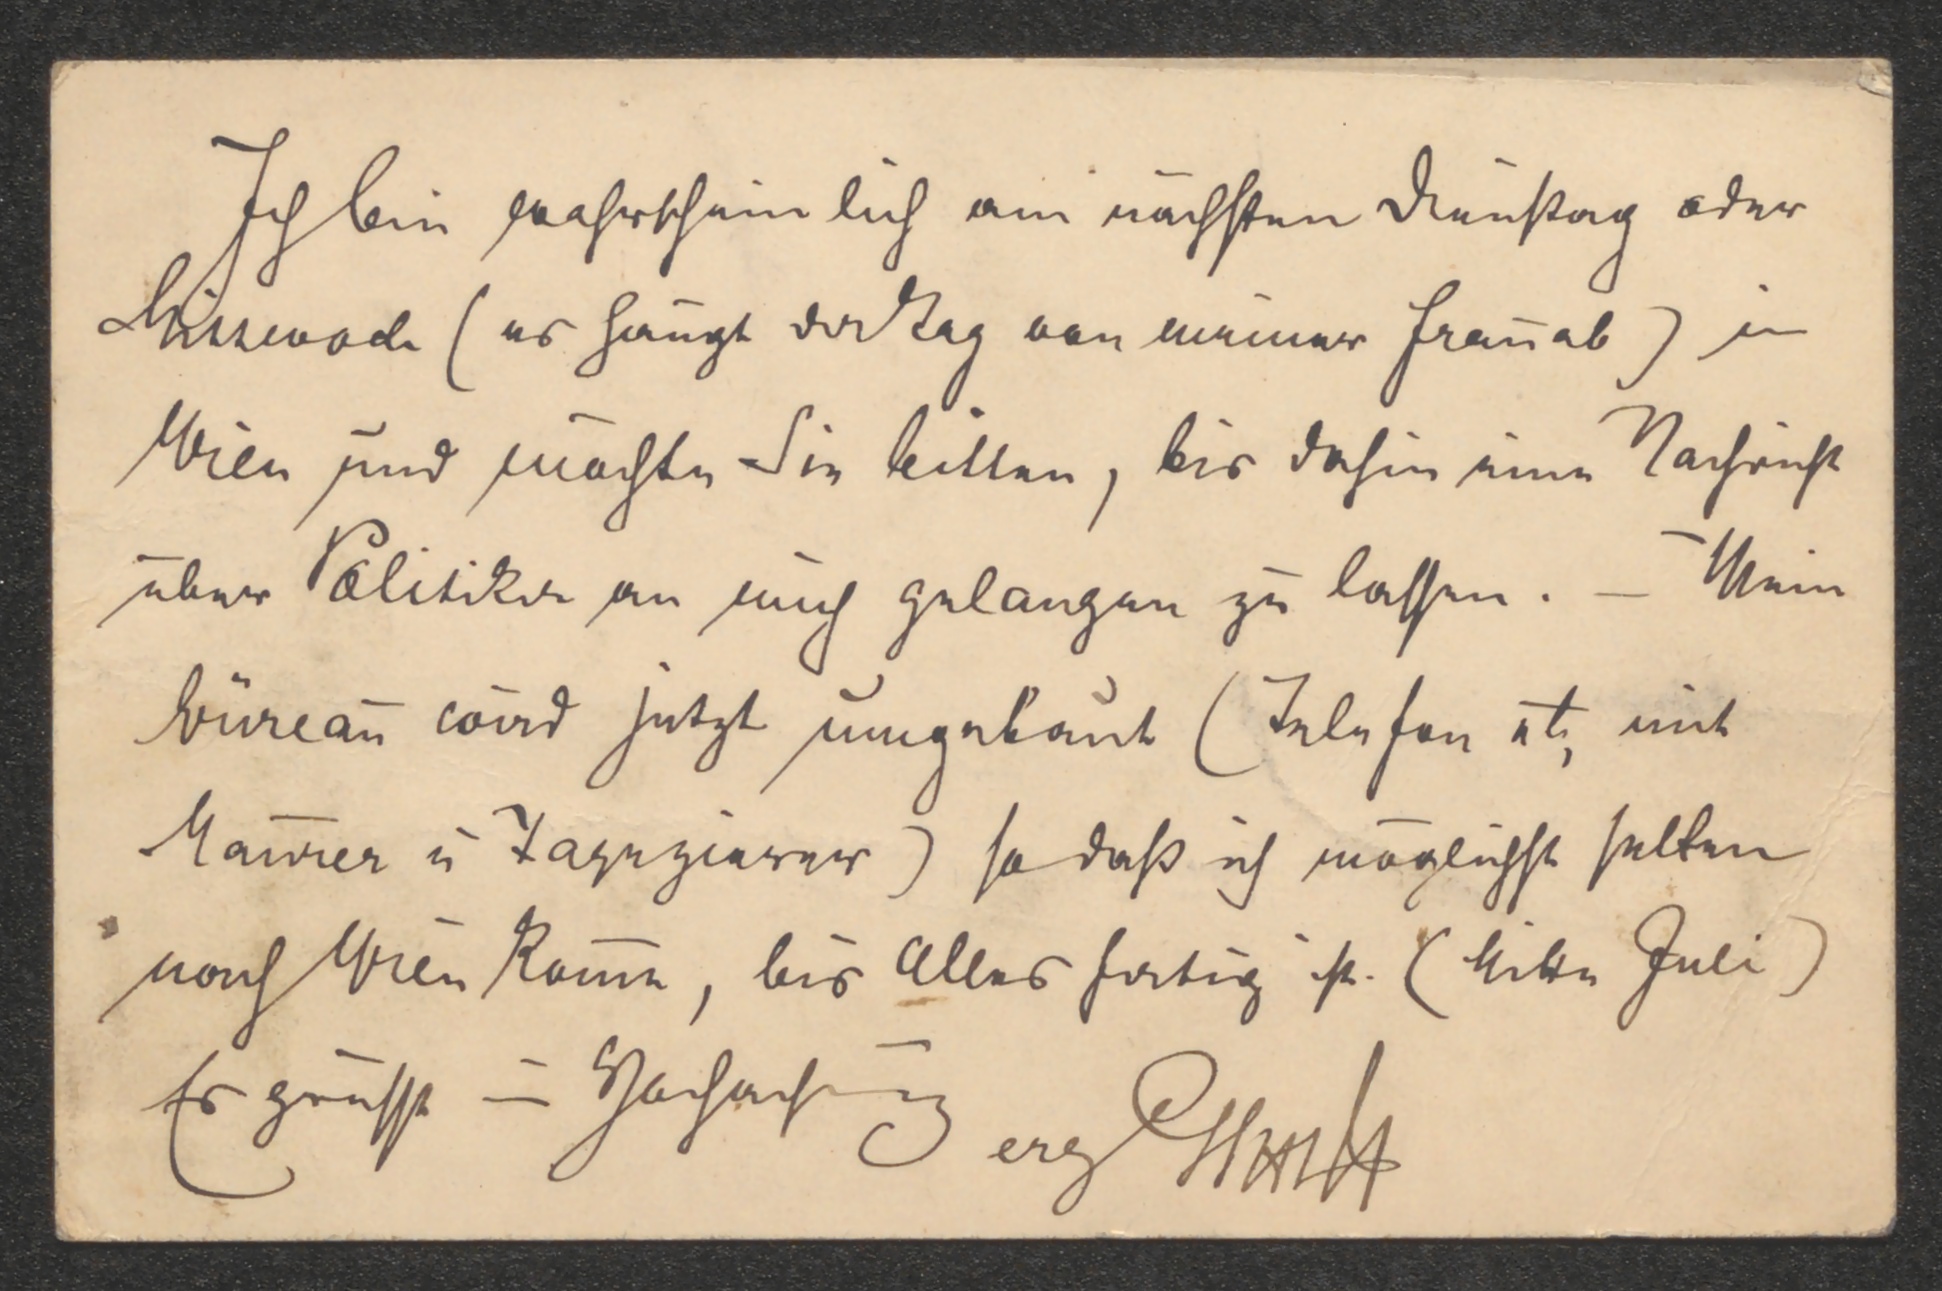 Ich bin wahrscheinlich am nächsten Dienstag oder
Mittwoch (es hängt der Tag von meiner Frau ab) in
Wien und möchte Sie bitten, bis dahin eine Nachricht
über Politiker an mich gelangen zu lassen. – Mein
Büreau wird jetzt umgebaut (Telefon etc, mit
Maurer u Tapezierer) so daß ich möglichst selten
nach Wien kom̄e, bis Alles fertig ist. (Mitte Juli)
Es grüsst in Hochachtung
erg